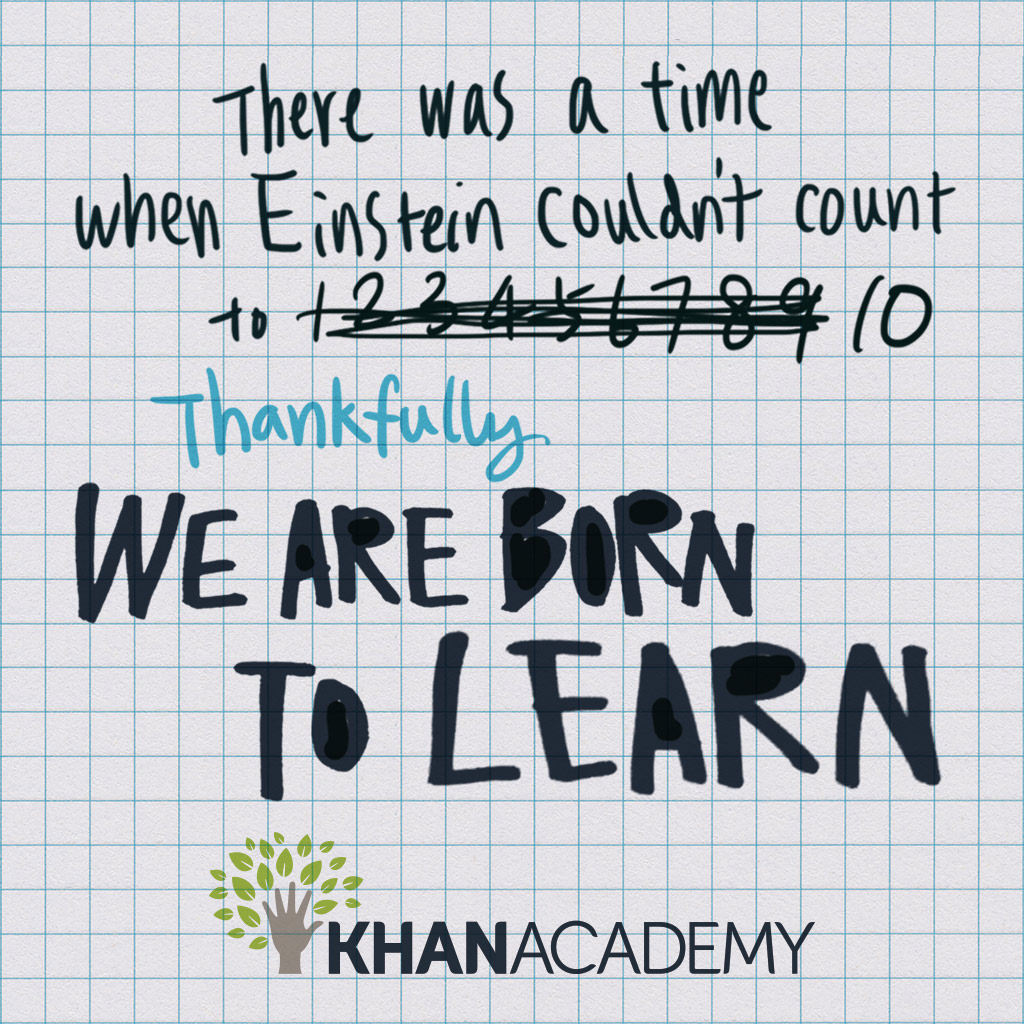 There was a time
when Einstein couldn't count
to 1 2 3 4 5 6 7 8 9 10
Thankfully
WE ARE BORN
TO LEARN
KHANACADEMY